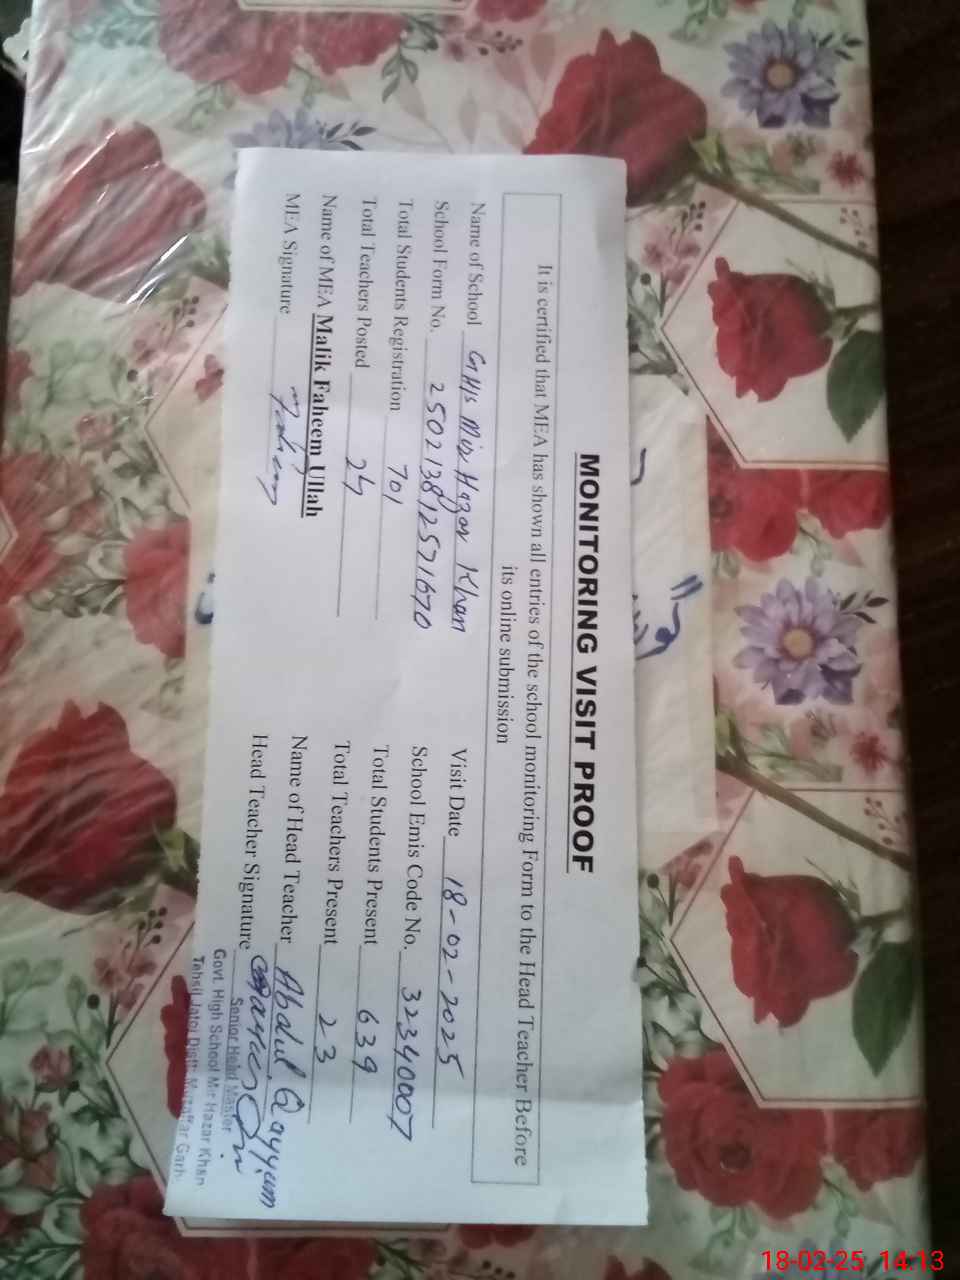 MONITORING VISIT PROOF
It is certified that MEA has shown all entries of the school monitoring Form to the Head Teacher Before
its online submission
Name of School GHS Mir Hazar Khan Visit Date 18-02-2025
School Form No. 250213812571670 School Emis Code No. 32340007
Total Students Registration 701 Total Students Present 639
Total Teachers Posted 24 Total Teachers Present 23
Name of MEA Malik Faheem Ullah Name of Head Teacher Abdul Qayyum
MEA Signature Faheem Head Teacher Signature
Senior Head Master
Govt. High School Mir Hazar Khan
Tehsil Jatoi Distt: Muzaffar Garh
18-02-25 14:13